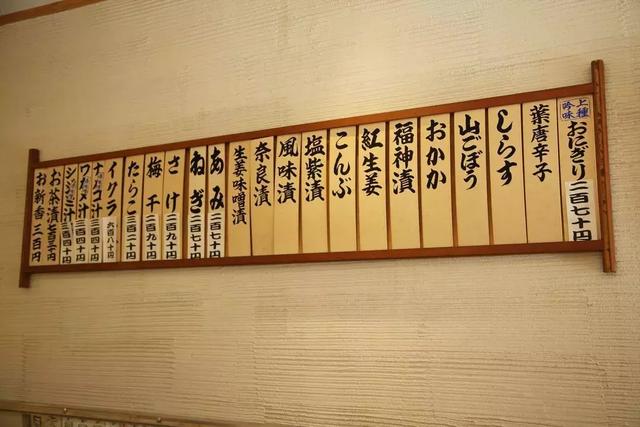 上種吟味
おにぎり 二百七十円
葉唐辛子
しらす
山ごぼう
おかか
福神漬
紅生姜
こんぶ
塩紫漬
風味漬
奈良漬
生姜味噌漬
あみ 二百七十円
ねぎ 二百七十円
さけ 二百九十円
梅干 二百九十円
たらこ 三百二十円
イクラ 六百八十円
ナメコ汁 三百四十円
ワカメ汁 三百四十円
シジミ汁 三百四十円
お茶漬
お新香 三百円